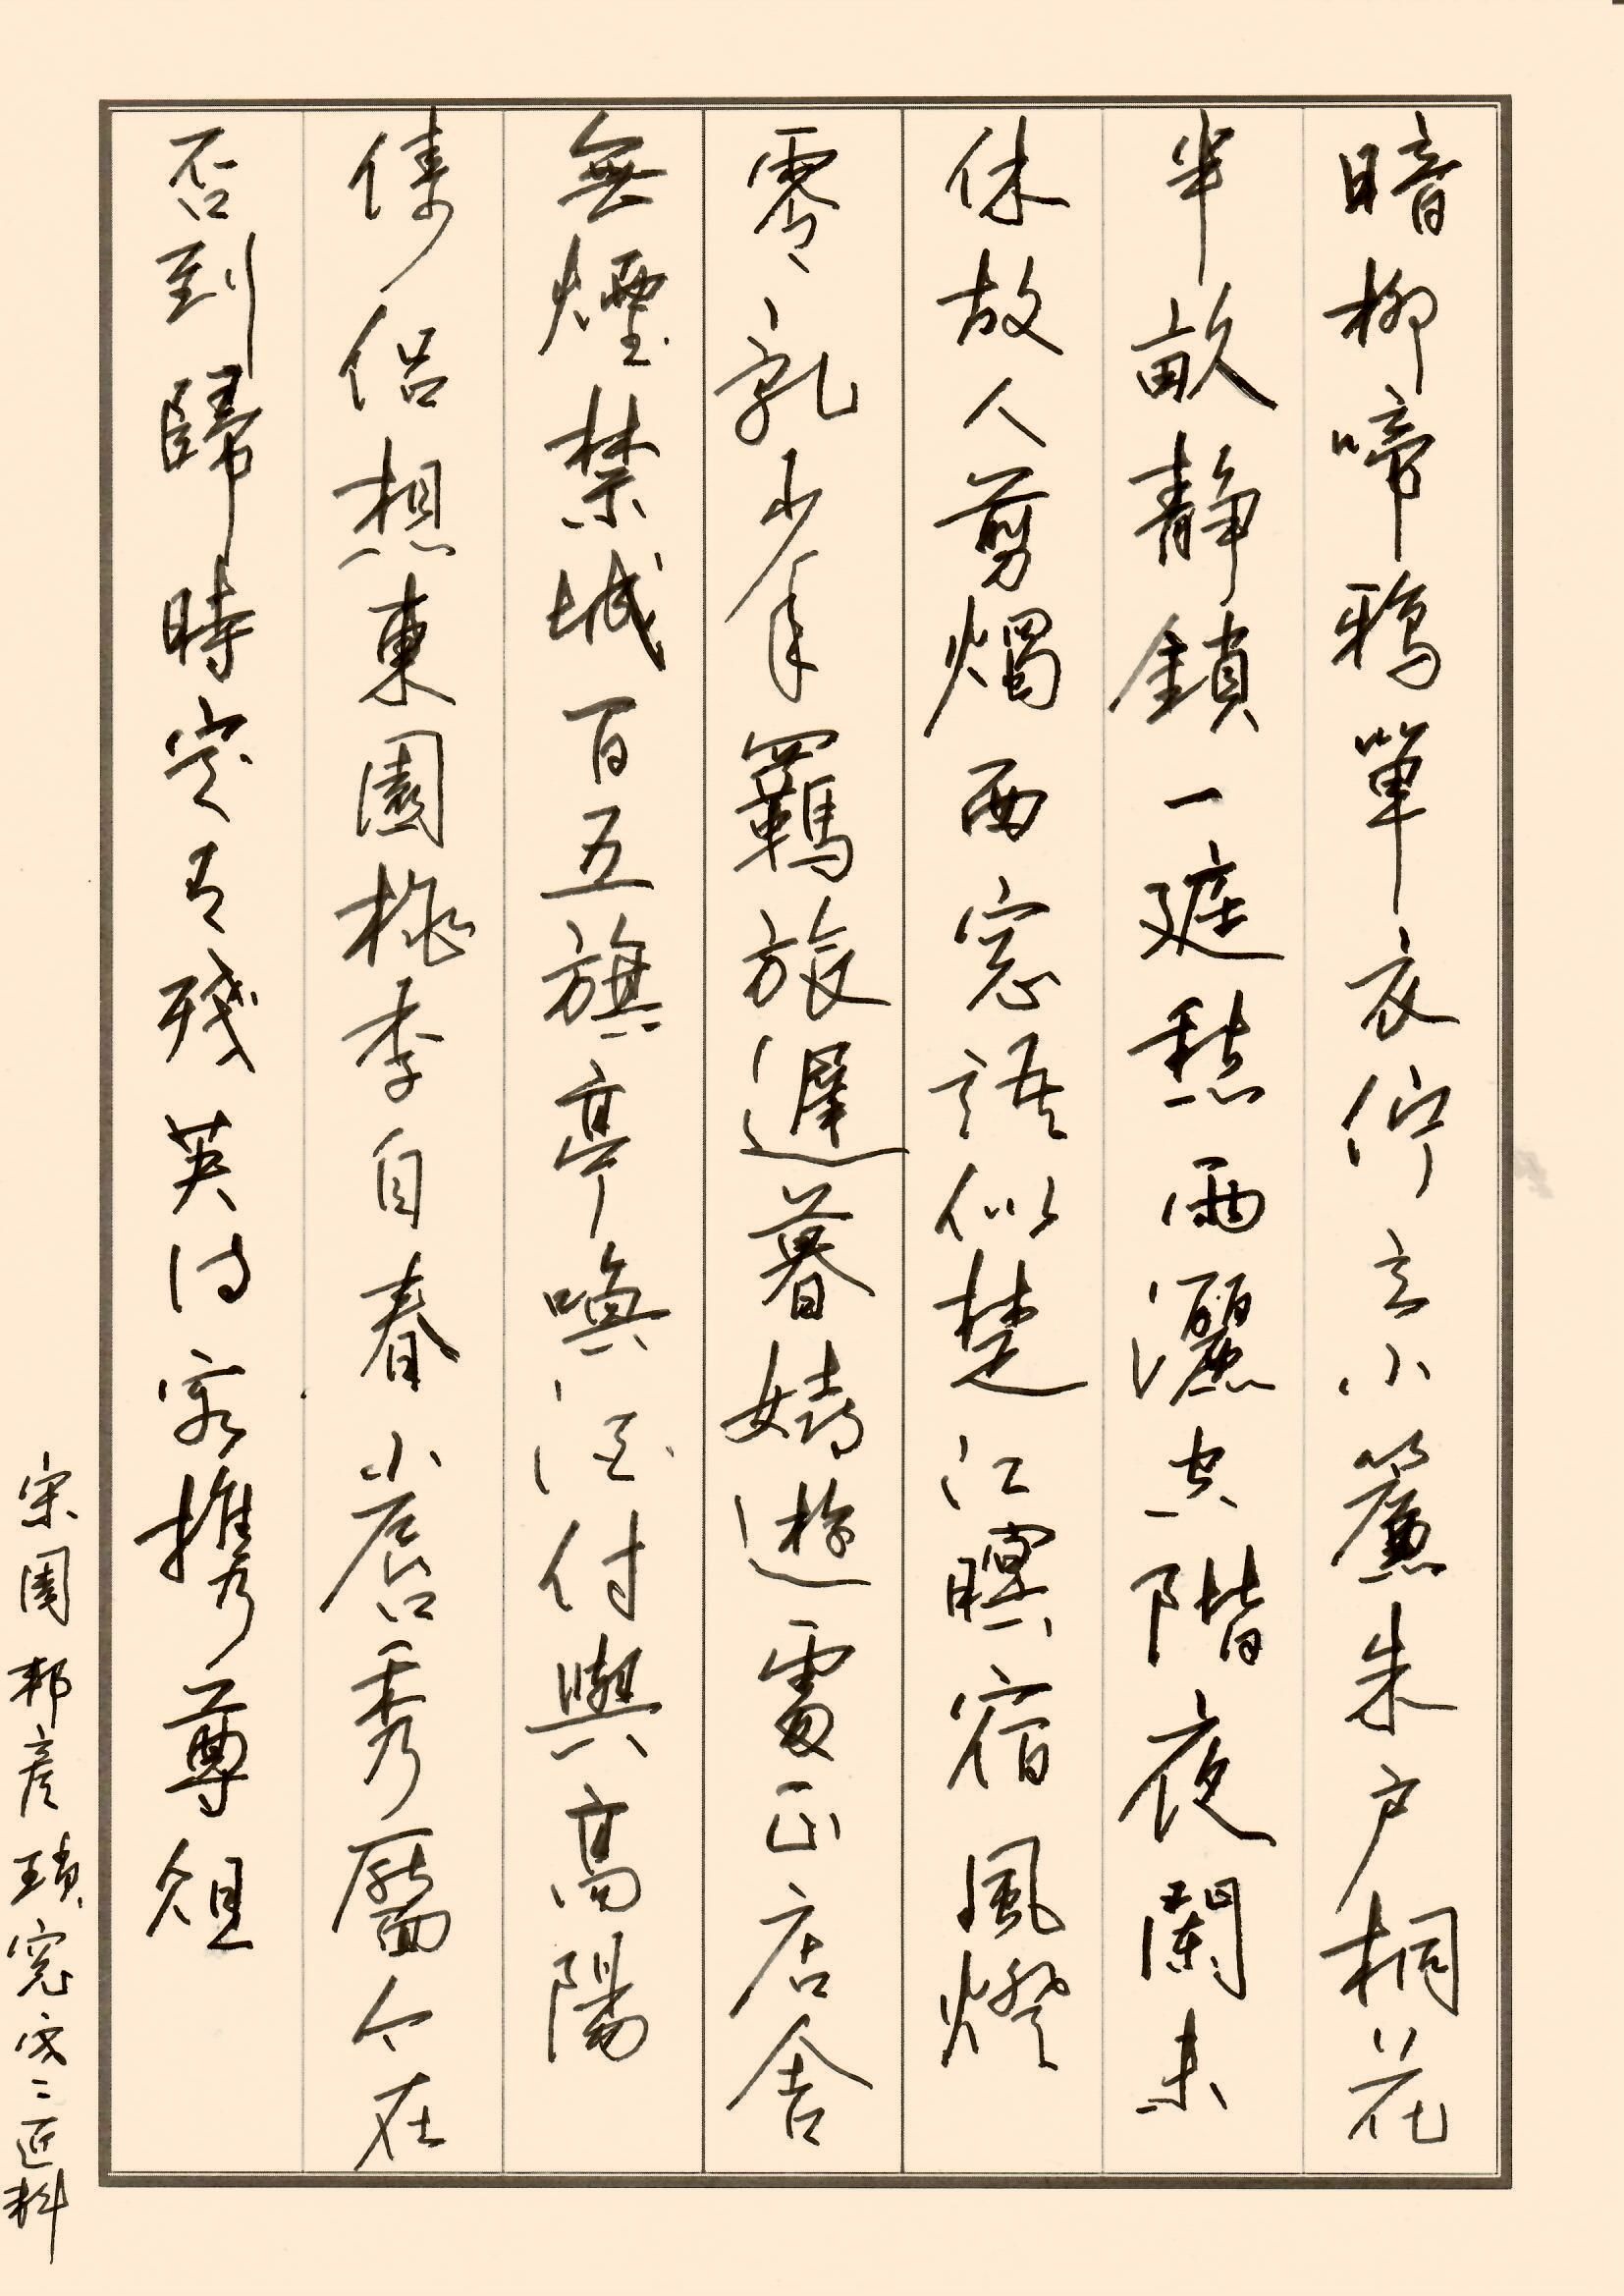 暗柳啼鴉單衣佇立小簾朱戶桐花
半畝靜鎖一庭愁雨灑空階夜闌未
休故人剪燭西窓語似楚江暝宿風燈
零亂少年羈旅遲暮嬉遊處正店舍
無煙禁城百五旗亭喚酒付與高陽
儔侶想東園桃李自春小唇秀靨今在
否到歸時定有殘英待客攜尊俎
宋周邦彥瑣窓寒二匠料